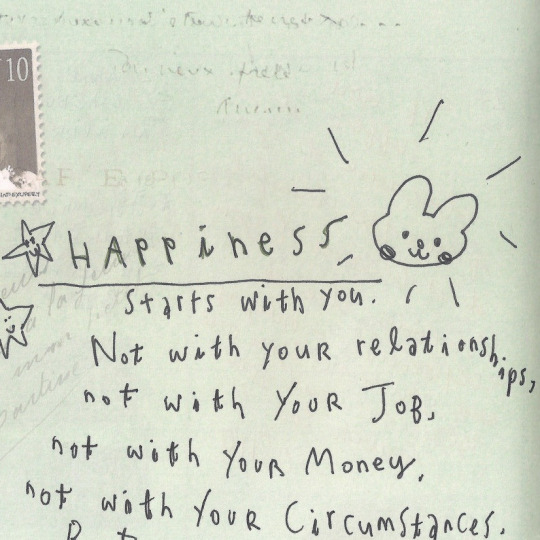 10
HAPPiness
starts with you.
Not with your relationships,
not with your Job,
not with your Money,
not with your Circumstances.